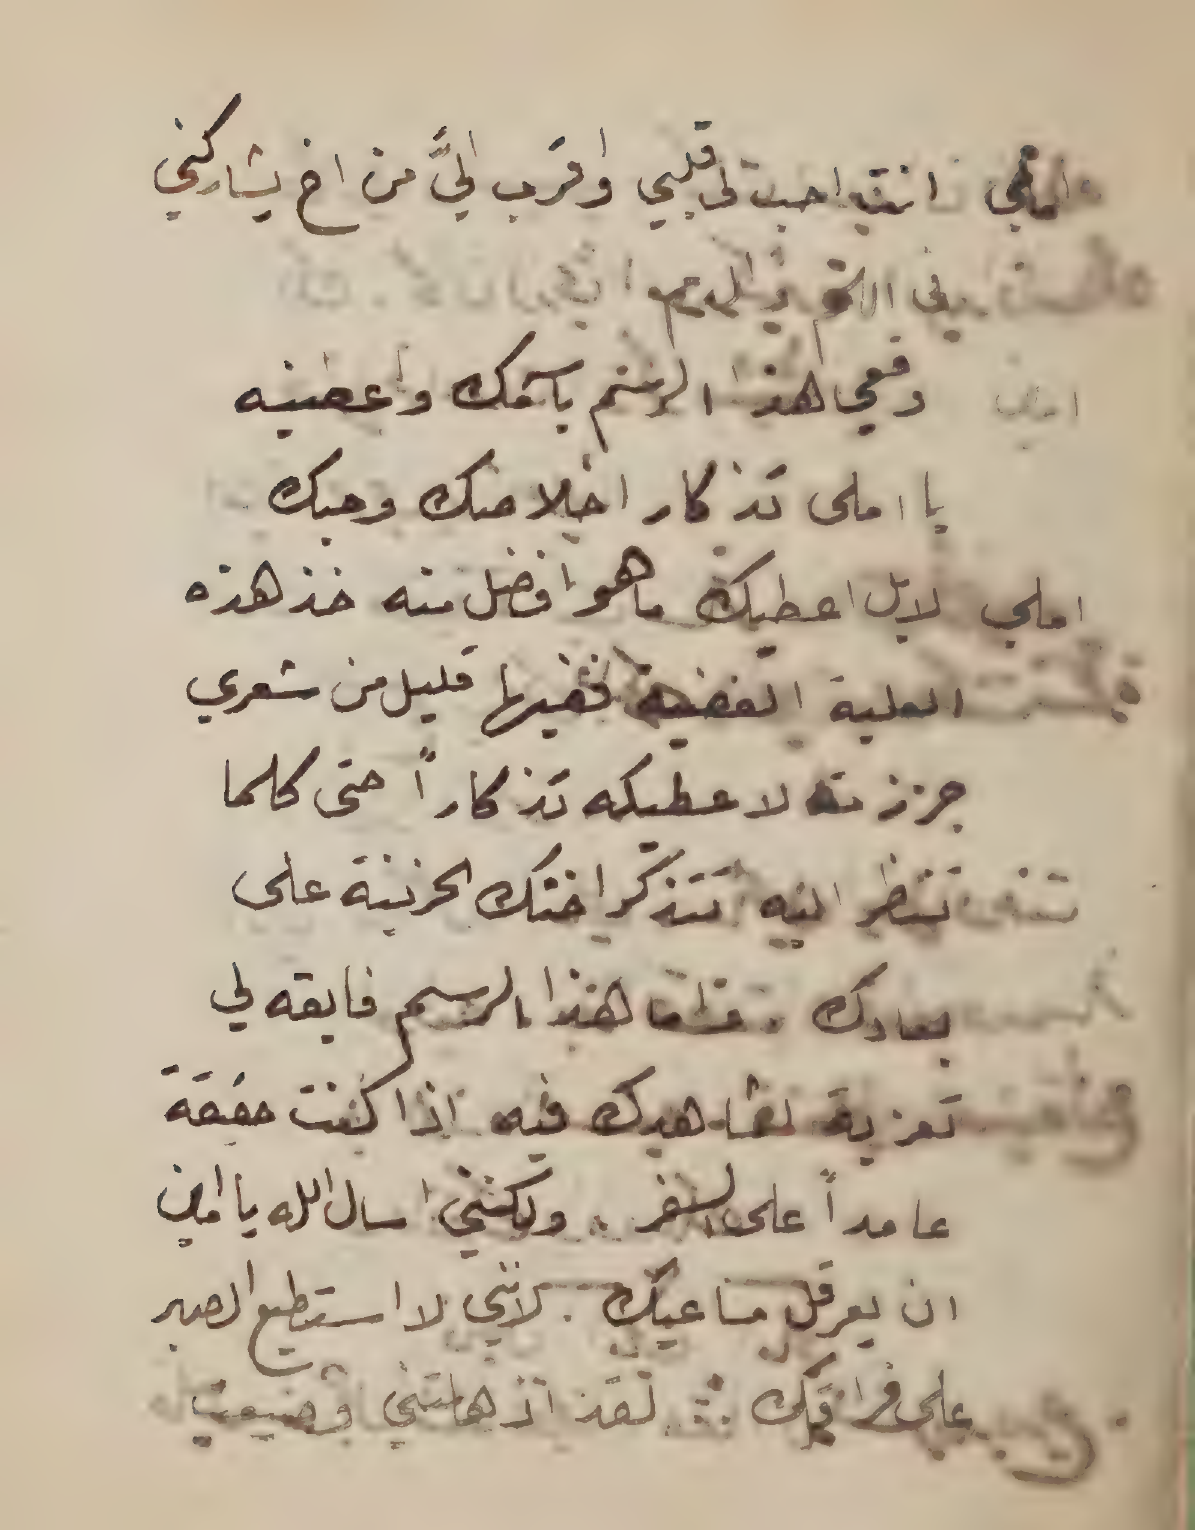 انت احب لى قلبي واقرب اليَّ من اخ يشاركني
في اللحم والدم
وقعي هذا الرسم باسمك واعطنيه
يا املي تذكار اخلاصك وحبك
املي لا بل اعطيك ما هو افضل منه خذ هذه
العلبة الفضية ففيها قليل من شعري
جززته لاعطيكه تذكاراً حتى كلما
تنظر اليه تتذكر اختك الحزينة على
بعادك . اما هذا الرسم فابقه لي
تعزية لمشاهدتك فيه اذا كنت حقيقة
عامداً على السفر . ولكنني اسال الله يا امين
ان يعرقل مساعيك . لانني لا استطيع الصبر
على فراقك لقد اذهلتني وضيعت